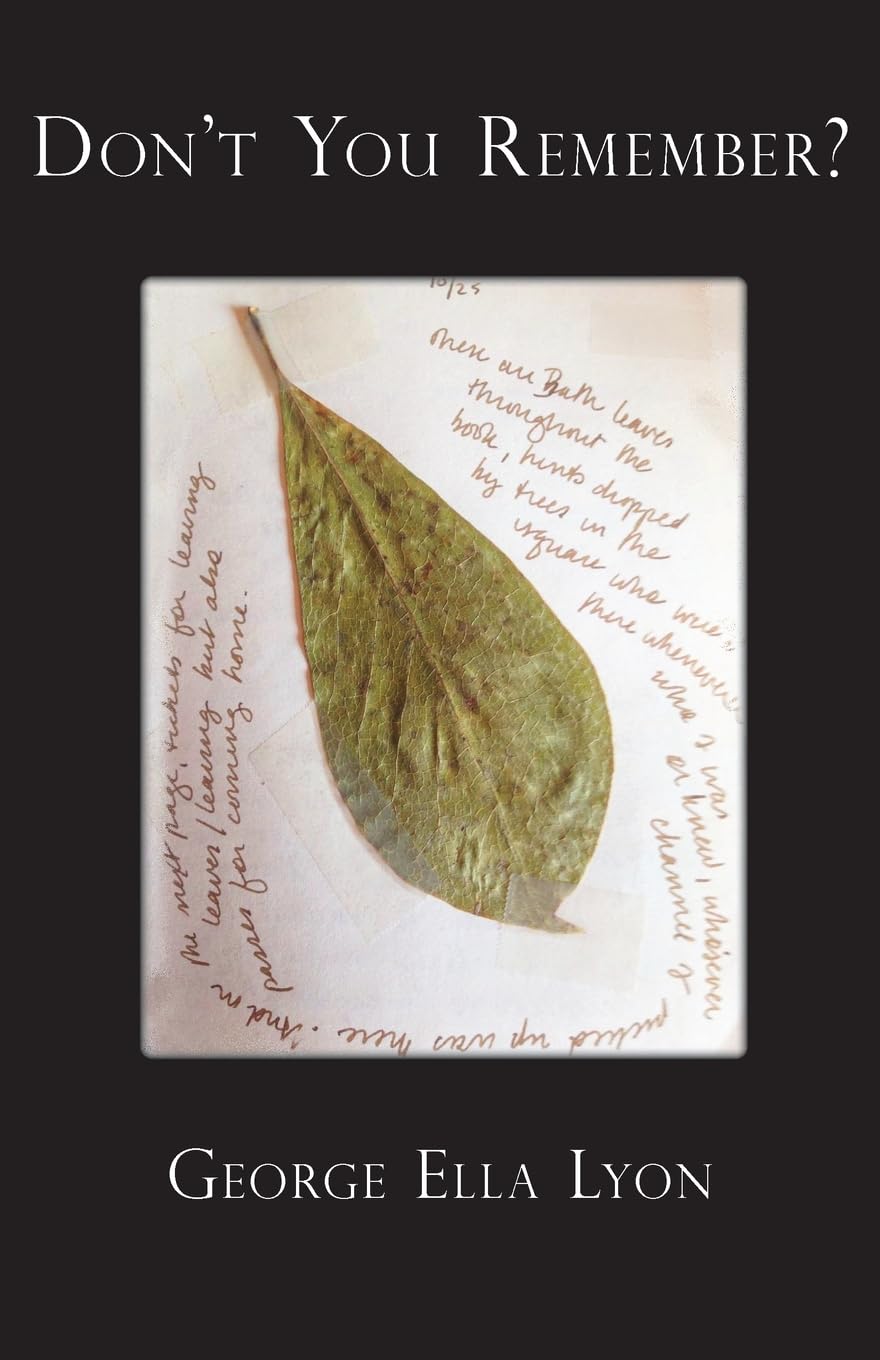 DON'T YOU REMEMBER?
10/25
These are Bath leaves
throughout the
book, hints dropped
by trees in the
square who were
there whenever
who I was
or knew, whoever
channel I
picked up was here. And in
the next page, tickets for leaving
leaves / leaving but also
passes for coming home.
GEORGE ELLA LYON